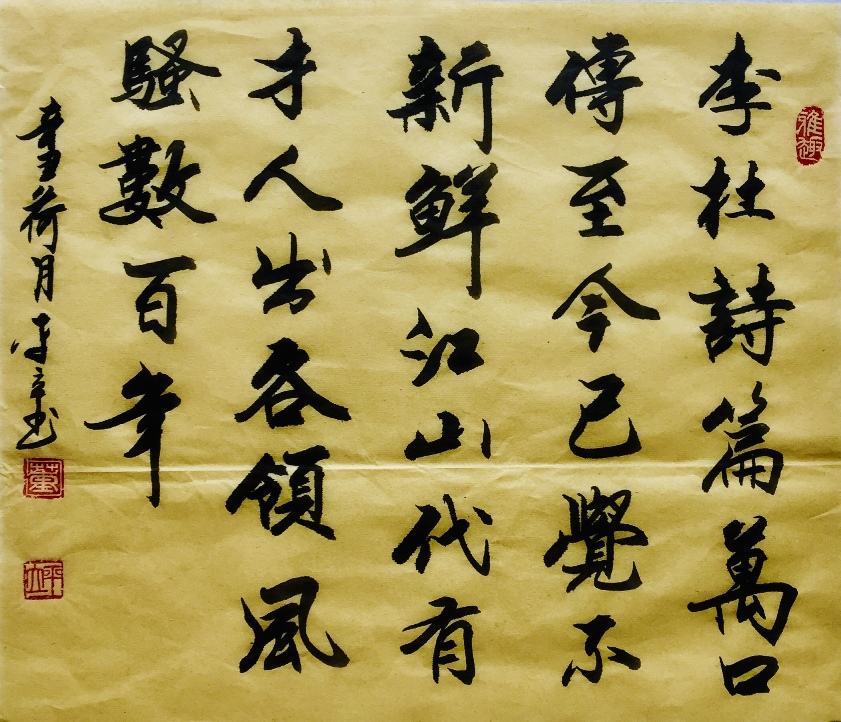 李杜詩篇萬口
傳至今已覺不
新鮮江山代有
才人出各領風
騷數百年
荷月
雅趣